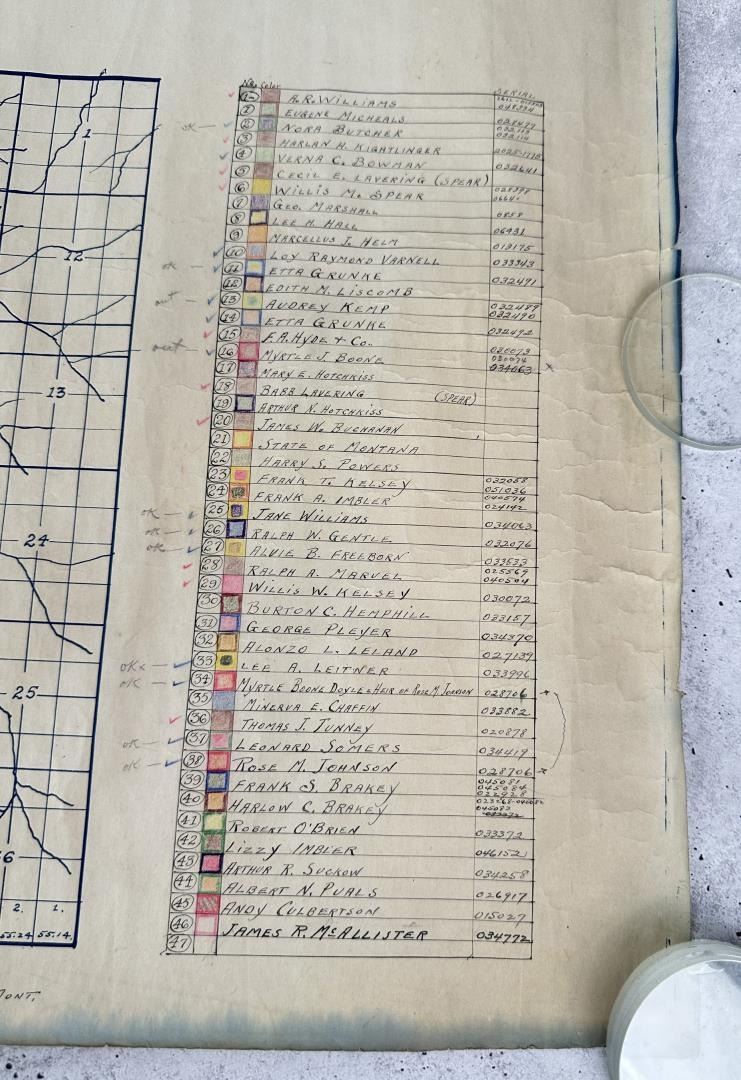 No. Color SERIAL
1 A.R. WILLIAMS
2 EUGENE MICHEALS 048334
OK 2 NORA BUTCHER 028477
3 HARLAN H. KIGHTLINGER
4 VERNA C. BOWMAN
5 CECIL E. LAVERING (SPEAR) 032641
6 WILLIS M. SPEAR
7 GEO. MARSHALL
8 LEE H. HALL 0858
9 MARCELLUS J. HELM 06431
10 LOY RAYMOND VARNELL 013175
OK 11 ETTA GRUNKE 033343
12 EDITH M. LISCOMB 032491
out 13 AUDREY KEMP 032489
14 ETTA GRUNKE 032490
15 F.A. HYDE & CO. 032492
out 16 MYRTLE J. BOONE 030073
030074
17 MARY E. HOTCHKISS 034063 x
18 BABB LAVERING (SPEAR)
19 ARTHUR N. HOTCHKISS
20 JAMES W. BUCHANAN
21 STATE OF MONTANA
22 HARRY S. POWERS
23 FRANK T. KELSEY 032058
051036
24 FRANK A. IMBLER 040574
024142
OK 25 JANE WILLIAMS 034063
OK 26 RALPH W. GENTLE 032076
OK 27 ALVIE B. FREEBORN 033533
28 RALPH A. MARVEL 025569
040504
29 WILLIS W. KELSEY 030072
30 BURTON C. HEMPHILL 033157
31 GEORGE PLEYER 034370
32 ALONZO L. LELAND 027139
OK 33 LEE A. LEITNER 033996
OK 34 MYRTLE BOONE DOYLE & HEIR OF ROSE M. JOHNSON 028706 x
35 MINERVA E. CHAFFIN 033882
36 THOMAS J. TUNNEY 020878
OK 37 LEONARD SOMERS 034419
OK 38 ROSE M. JOHNSON 028706 x
39 FRANK S. BRAKEY 045081
045084
022928
40 HARLOW C. BRAKEY 045083
41 ROBERT O'BRIEN 033372
42 LIZZY IMBLER 046152
43 ARTHUR R. SUCKOW 034258
44 ALBERT N. PUALS 026917
45 ANDY CULBERTSON 015027
46 JAMES R. McALLISTER 034772
47
1
12
13
24
25
6
2. 1.
55.24 55.14
MONT.